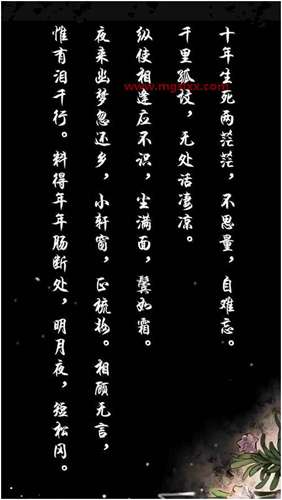 十年生死两茫茫，不思量，自难忘。
千里孤坟，无处话凄凉。
纵使相逢应不识，尘满面，鬓如霜。
夜来幽梦忽还乡，小轩窗，正梳妆。相顾无言，
惟有泪千行。料得年年肠断处，明月夜，短松冈。